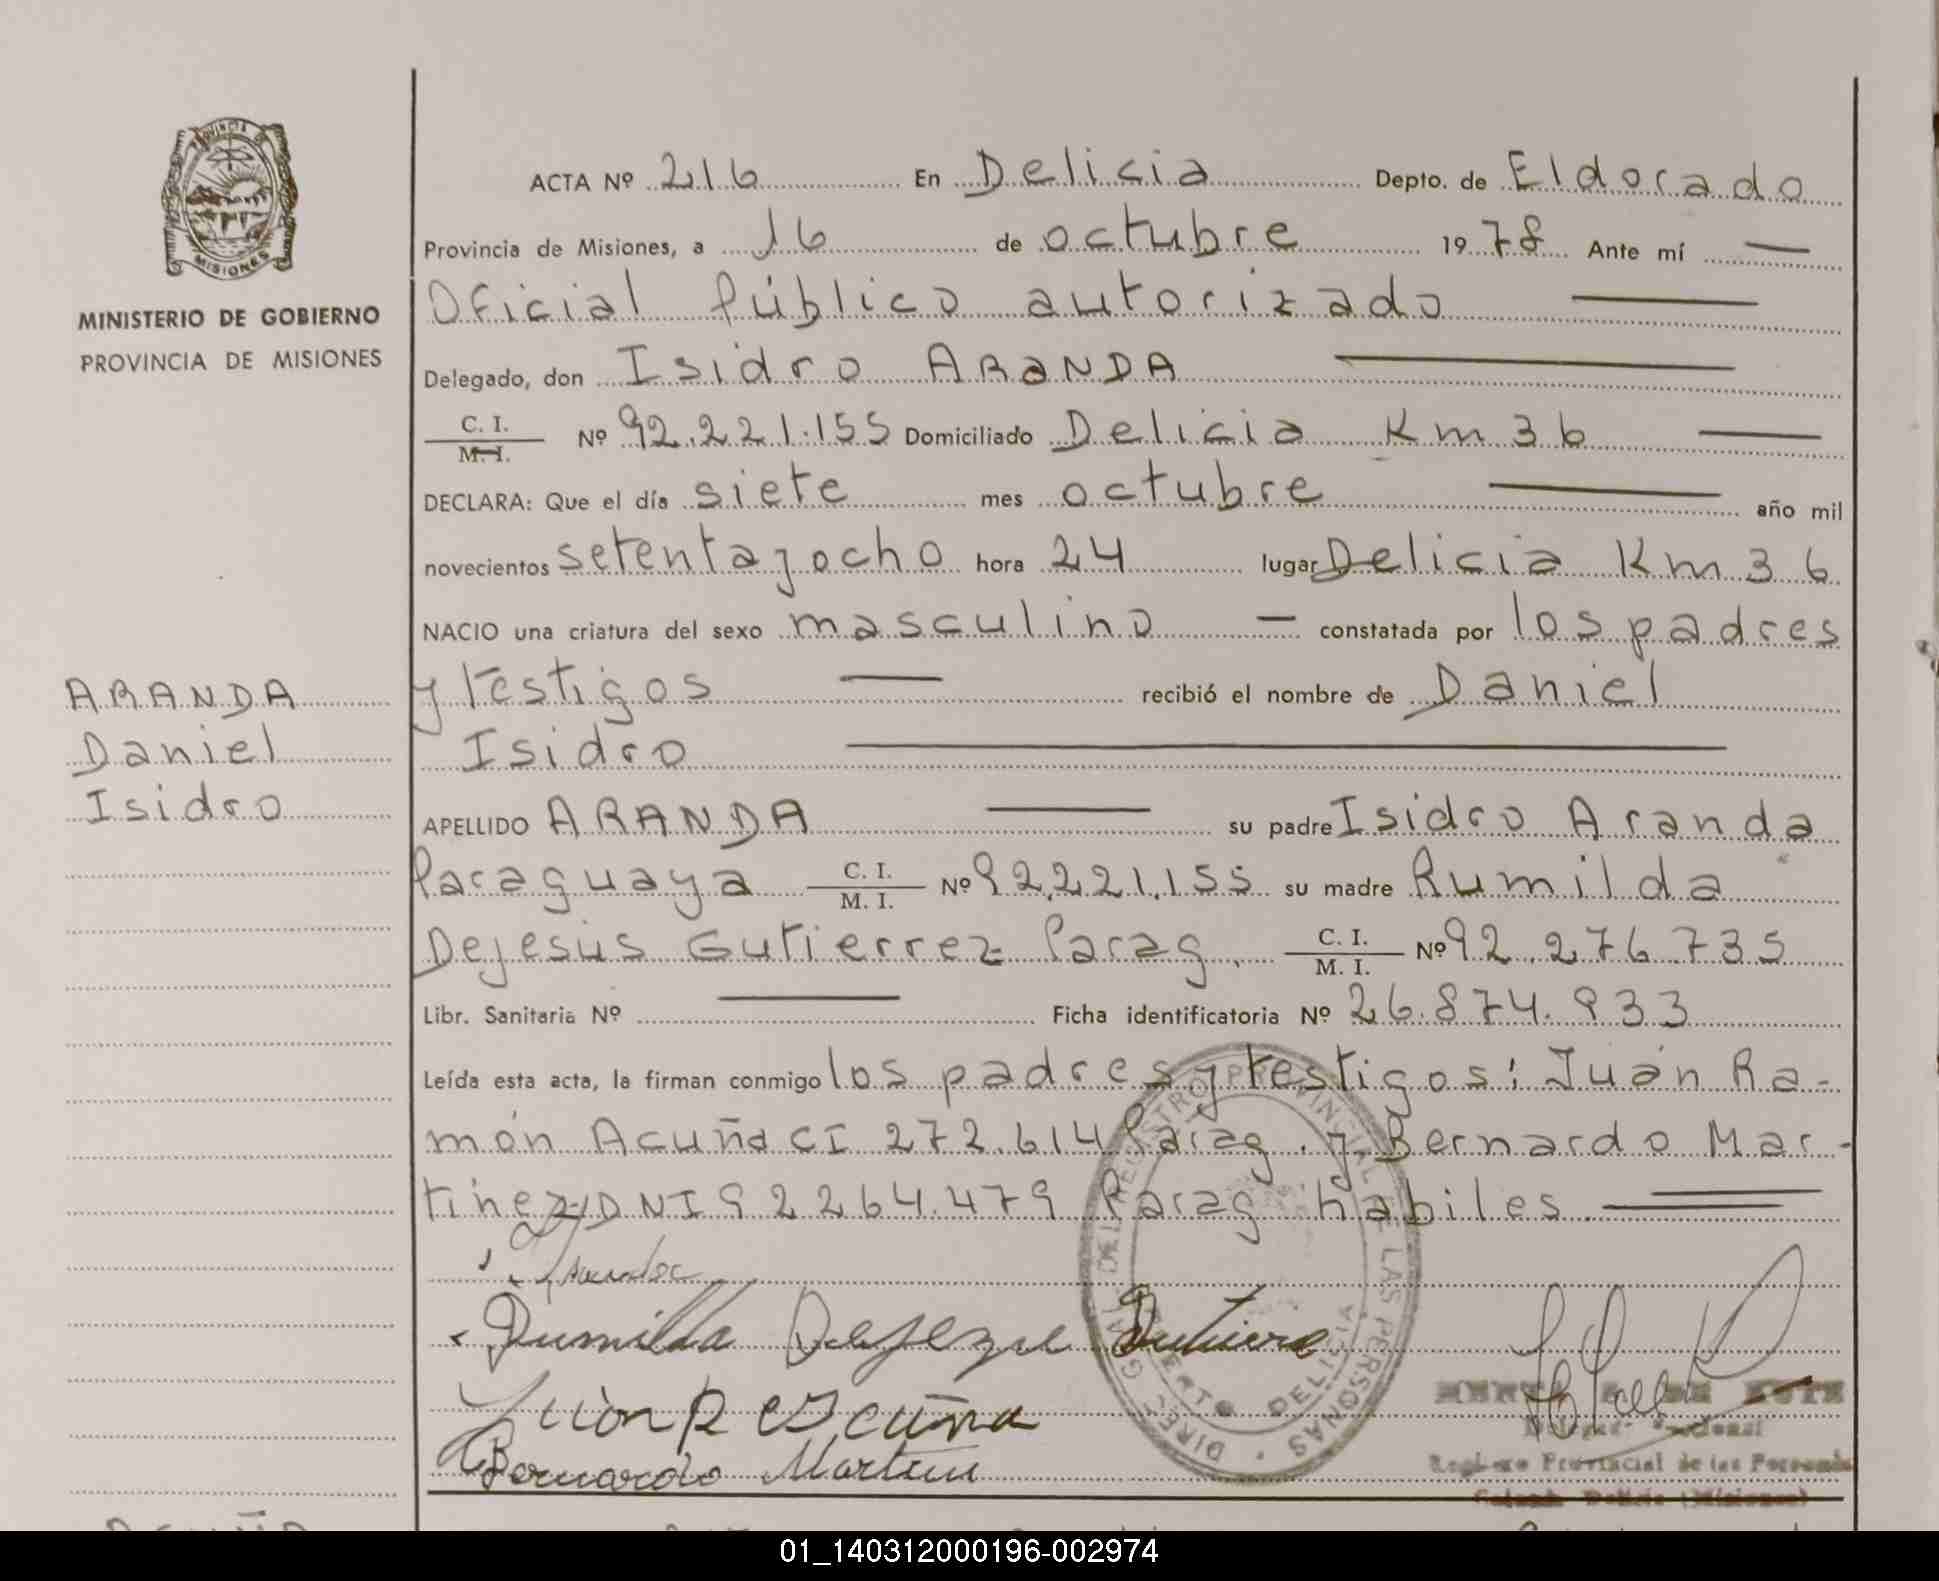 PROVINCIA DE
MISIONES
MINISTERIO DE GOBIERNO
PROVINCIA DE MISIONES
ARANDA
Daniel
Isidro
ACTA Nº 216 En Delicia Depto. de Eldorado
Provincia de Misiones, a 16 de octubre 1978 Ante mí —
Oficial Público autorizado —
Delegado, don Isidro ARANDA —
C. I.
M. I. Nº 92.221.155 Domiciliado Delicia Km 36 —
DECLARA: Que el día siete mes octubre — año mil
novecientos setentayocho hora 24 lugar Delicia Km 36
NACIO una criatura del sexo masculino — constatada por los padres
y testigos — recibió el nombre de Daniel
Isidro —
APELLIDO ARANDA — su padre Isidro Aranda
Paraguaya C. I.
M. I. Nº 92.221.155 su madre Rumilda
Dejesús Gutierrez Parag. C. I.
M. I. Nº 92.276.735
Libr. Sanitaria Nº — Ficha identificatoria Nº 26.874.933
Leída esta acta, la firman conmigo los padres y testigos: Juán Ra-
món Acuña CI 272.614 Parag. y Bernardo Mar-
tinez DNI 92264.479 Parag hábiles. —
Aranda
Rumilda Dejezu Gutiere
Juòn R Escuñna
Bernardo Martin
DIREC. GRAL. DEL REGISTRO PROVINCIAL DE LAS PERSONAS
PUERTO DELICIA
Registro Provincial de las Personas
Colonia Delicia (Misiones)
01_140312000196-002974